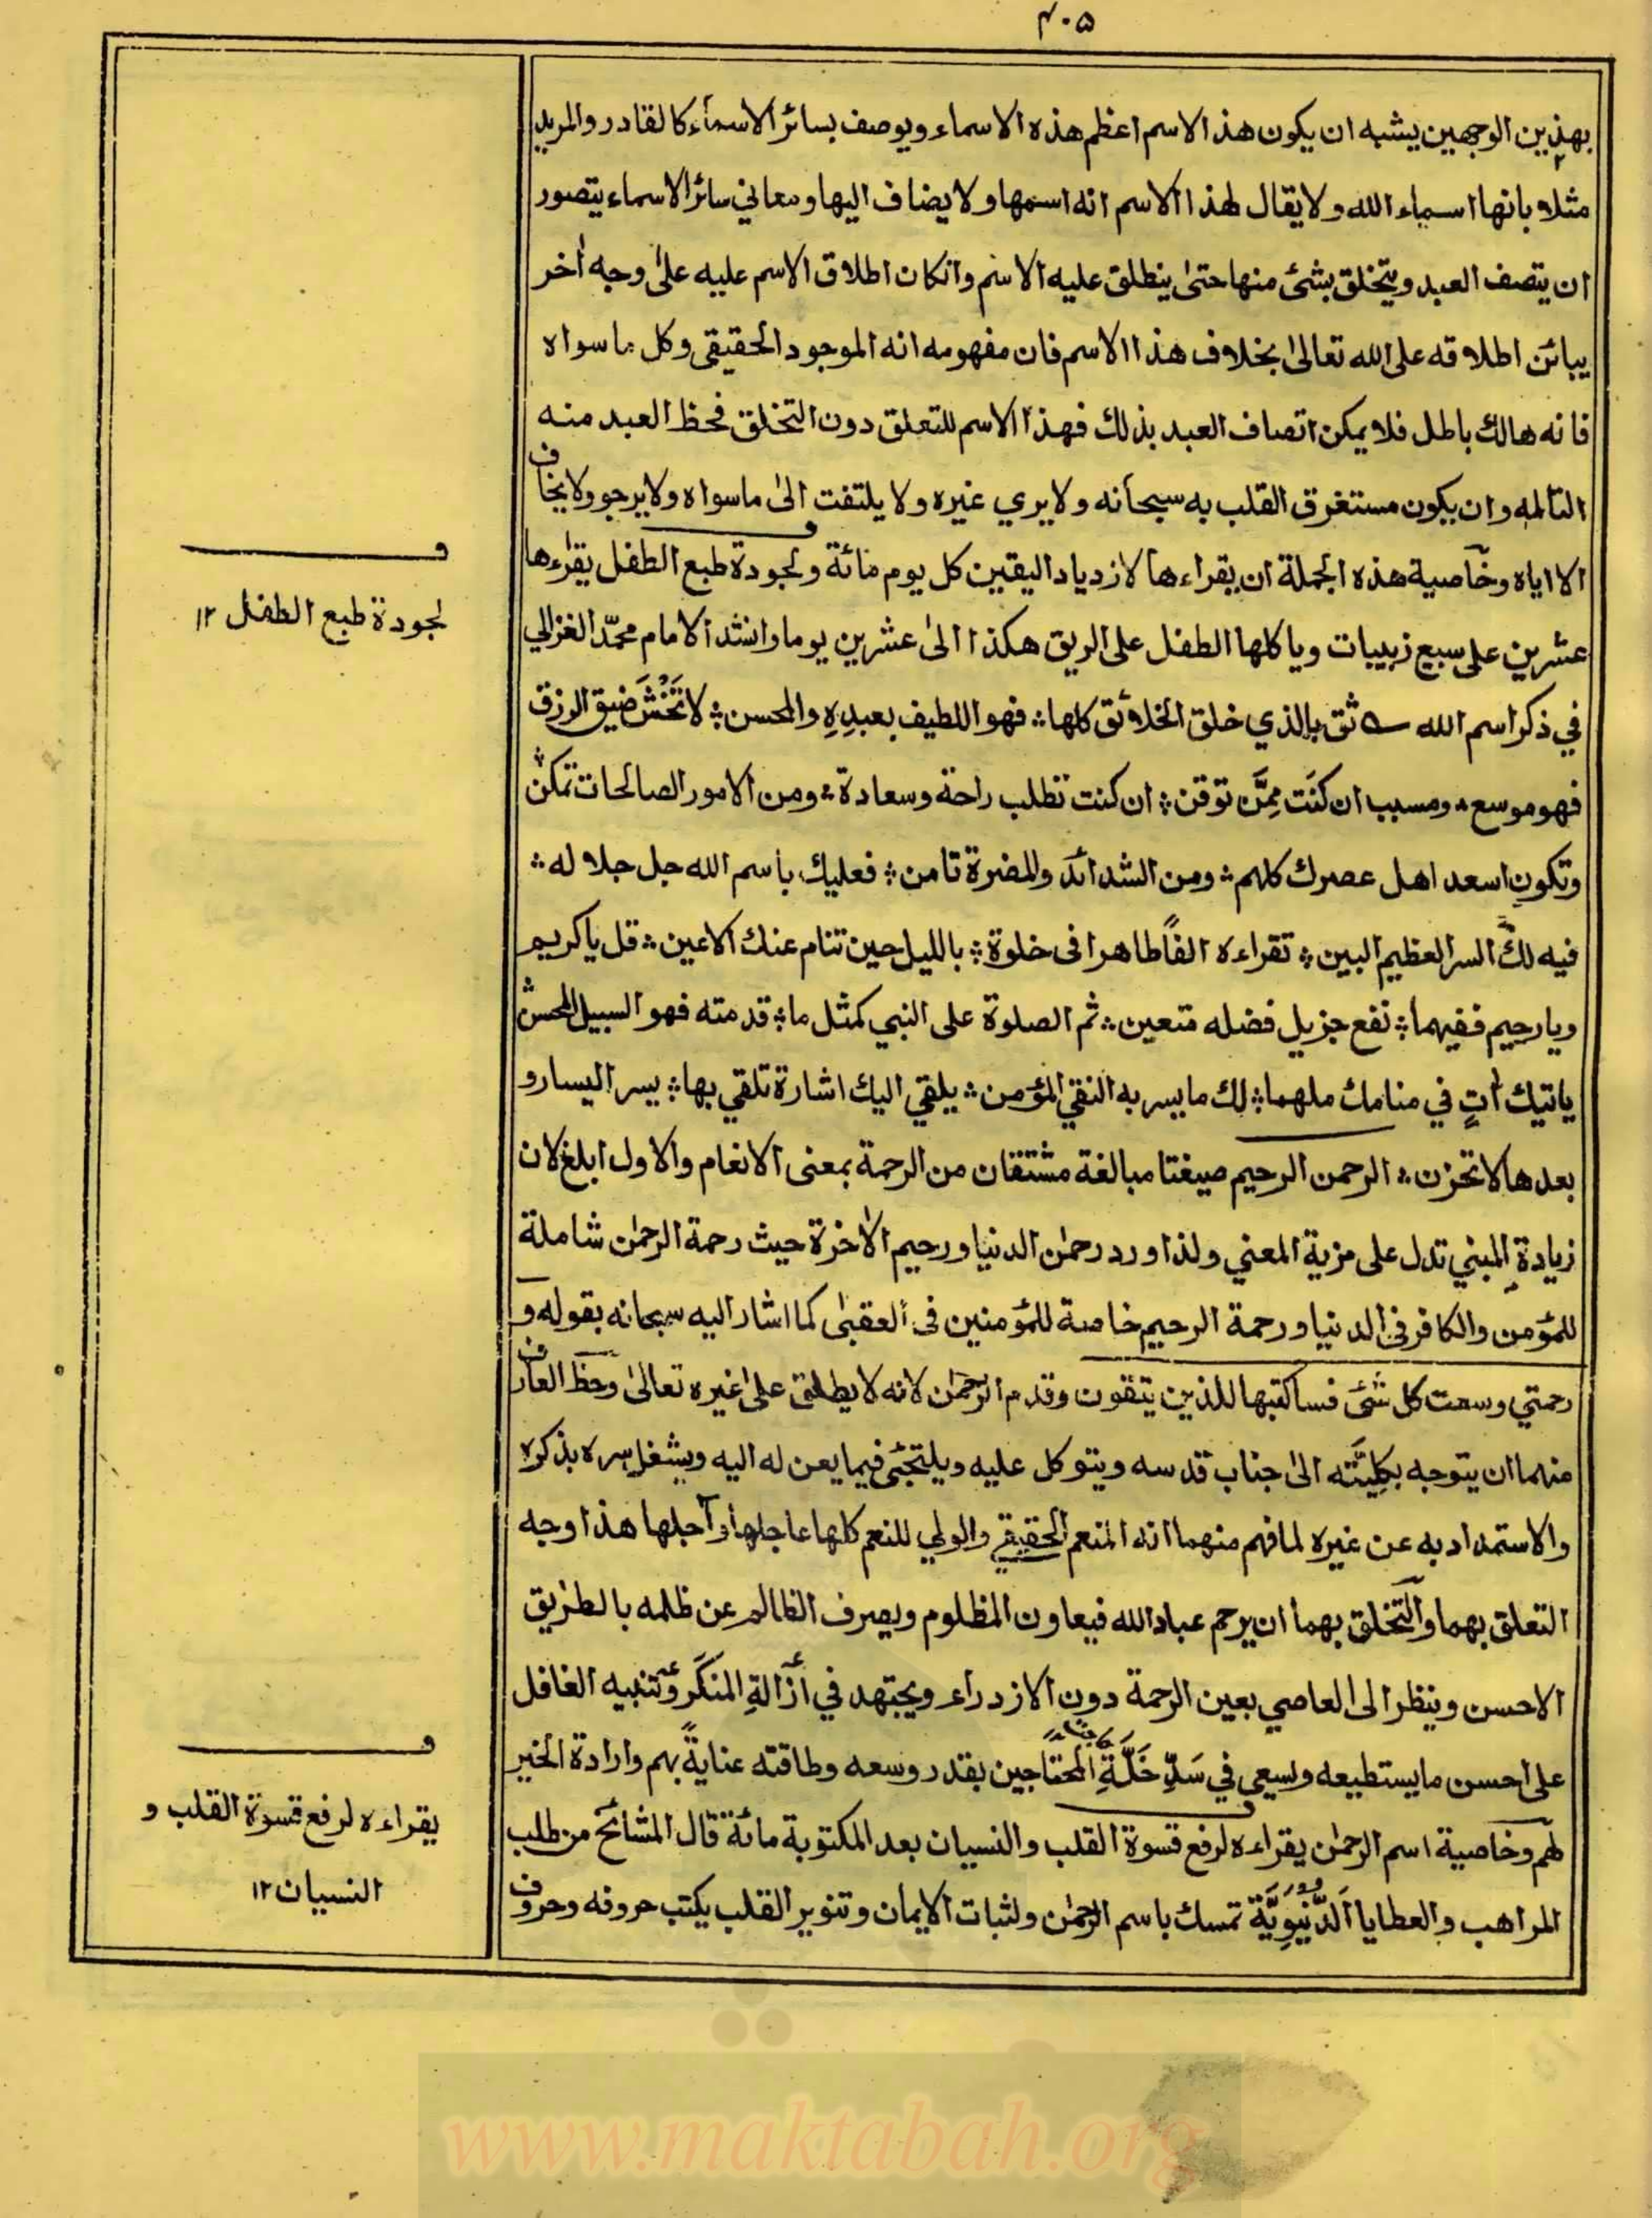 ٣٠٥
بهذين الوجهين يشبه ان يكون هذا الاسم اعظم هذه الاسماء ويوصف بسائر الاسماء كالقادر والمريد
مثلا بانها اسماء الله ولا يقال لهذا الاسم انه اسمها ولا يضاف اليها ومعاني سائر الاسماء يتصور
ان يتصف العبد ويتخلق بشئ منها حتى ينطلق عليه الاسم وانكان اطلاق الاسم عليه على وجه اخر
يبائن اطلاقه على الله تعالى بخلاف هذا الاسم فان مفهومه انه الموجود الحقيقي وكل ما سواه
فانه هالك باطل فلا يمكن اتصاف العبد بذلك فهذا الاسم للتعلق دون التخلق فحظ العبد منه
التاله وان يكون مستغرق القلب به سبحانه ولا يري غيره ولا يلتفت الى ماسواه ولا يرجو ولا يخاف
الا اياه وخاصية هذه الجملة ان يقراءها لازدياد اليقين كل يوم مائة ولجودة طبع الطفل يقراءها
لجودة طبع الطفل ١٢
عشرين على سبع زبيبات وياكلها الطفل على الريق هكذا الى عشرين يوما وانشد الامام محمد الغزالي
في ذكر اسم الله ثق بالذي خلق الخلائق كلها ؞ فهو اللطيف بعبدِهِ والمحسن ؞ لا تَخْشَ ضيق الرزق
فهو موسع ؞ ومسبب ان كنت مِمَّن توقن ؞ ان كنت تطلب راحة وسعادة ؞ ومن الامور الصالحات تمكن ؞
وتكون اسعد اهل عصرك كلهم ؞ ومن الشدائد والمضرة تامن ؞ فعليك باسم الله جل جلاله ؞
فيه لك السر العظيم البين ؞ تقراءه الفًا طاهرا فى خلوة ؞ بالليل حين تنام عنك الاعين ؞ قل يا كريم
ويا رحيم ففيهما ؞ نفع جزيل فضله متعين ؞ ثم الصلوة على النبي كمثل ما ؞ قدمته فهو السبيل المحسن ؞
ياتيك اٰتٍ في منامك ملهما ؞ لك ما يسر به النقي المؤمن ؞ يلقي اليك اشارة تلقي بها ؞ يسر اليسار و
بعدها لا تحزن ؞ الرحمن الرحيم صيغتا مبالغة مشتقان من الرحمة بمعنى الانعام والاول ابلغ لان
زيادة المبني تدل على مزية المعني ولذا ورد رحمٰن الدنيا ورحيم الاٰخرة حيث رحمة الرحمٰن شاملة
للمؤمن والكافر في الدنيا ورحمة الرحيم خاصة للمؤمنين فى العقبٰى كما اشار اليه سبحانه بقوله و
رحمتي وسعت كل شئ فساكتبها للذين يتقون وقدم الرحمٰن لانه لا يطلق على غيره تعالىٰ وحظ العارف
منهما ان يتوجه بكليَّته الى جناب قدسه ويتوكل عليه ويلتجئ فيما يعن له اليه ويشغل سره بذكره
والاستمداد به عن غيره لما فهم منهما انه المنعم الحقيقي والولي للنعم كلها عاجلها واٰجلها هذا وجه
التعلق بهما والتخلق بهما ان يرحم عباد الله فيعاون المظلوم ويصرف الظالم عن ظلمه بالطريق
الاحسن وينظر الى العاصي بعين الرحمة دون الازدراء ويجتهد في ازالةِ المنكَر وتنبيه الغافل
على احسن ما يستطيعه ويسعى في سَدِّ خَلَّةِ المحتاجين بقدر وسعه وطاقته عنايةً بهم وارادة الخير
لهم وخاصية اسم الرحمٰن يقراءه لرفع قسوة القلب والنسيان بعد المكتوبة مائة قال المشائخ من طلب
يقراءه لرفع قسوة القلب و
النسيان ١٢
المراهب والعطايا الدُّنيَوِيَّة تمسك باسم الرحمٰن ولثبات الايمان وتنوير القلب يكتب حروفه وحروف
www.maktabah.org